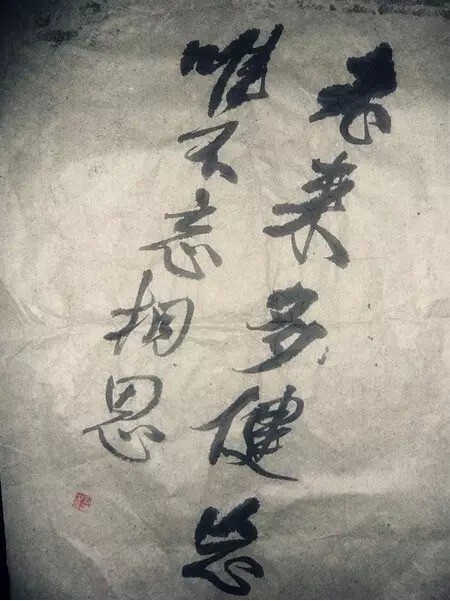 老美多健忘
唯不忘相思